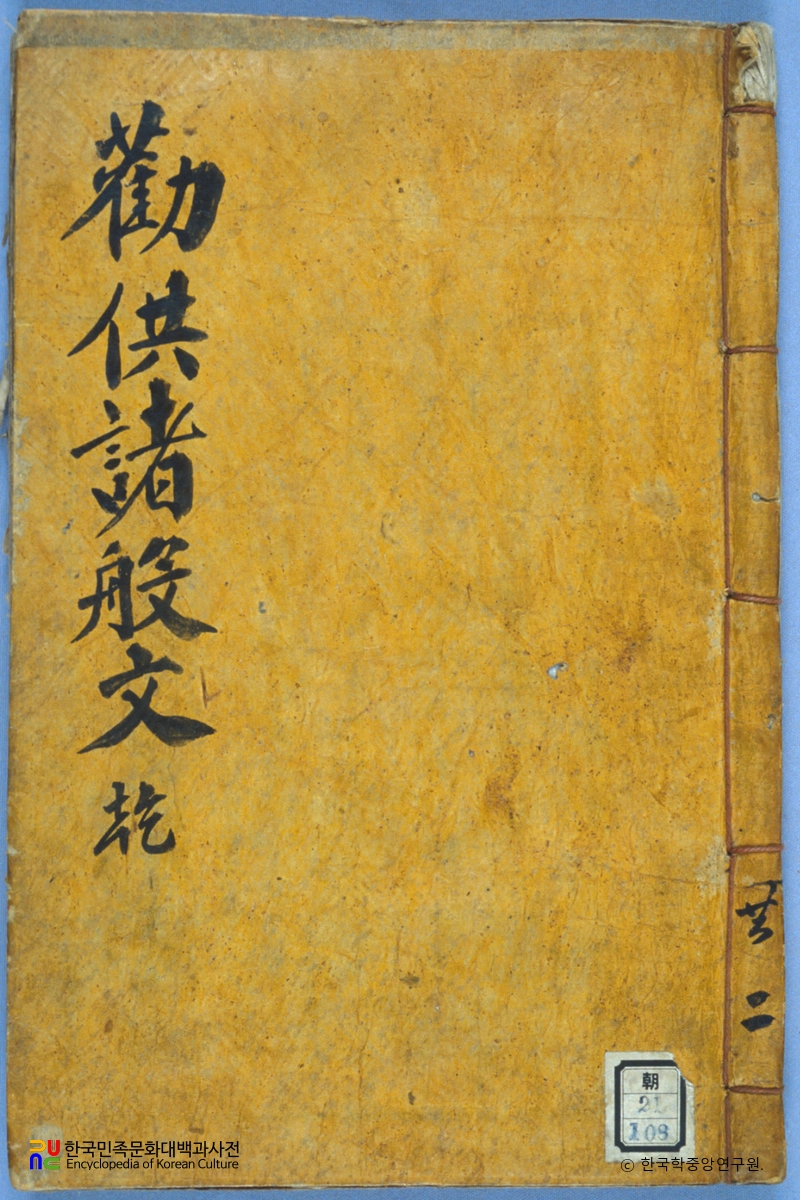 勸供諸般文 乾
共二
朝
21
108
한국민족문화대백과사전
Encyclopedia of Korean Culture
© 한국학중앙연구원.